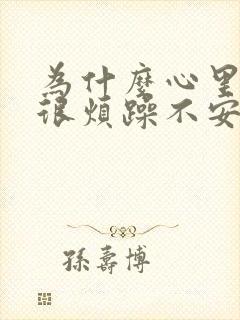 为什麼心里
很煩躁不安
孫壽博